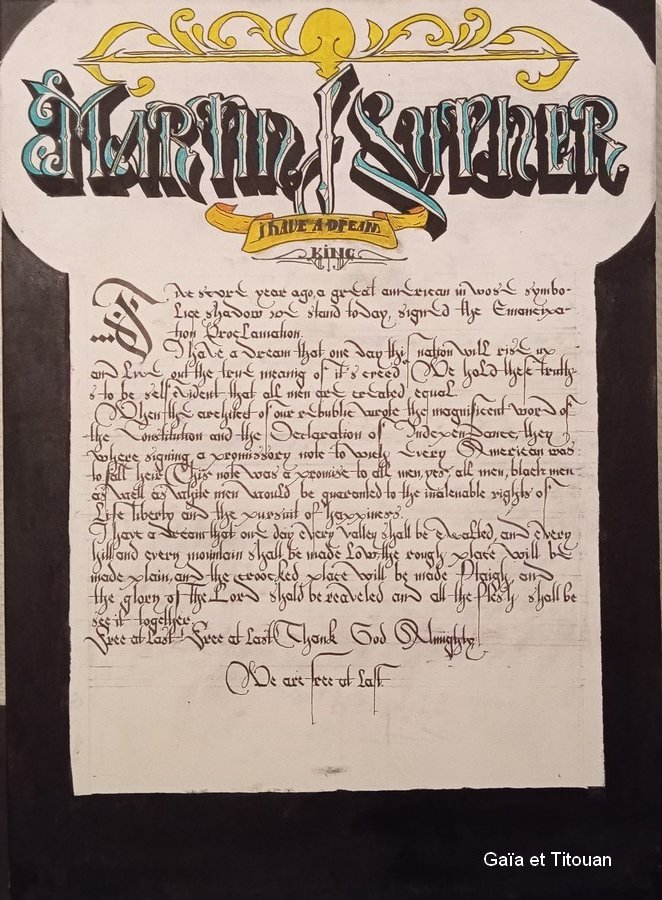 Martin Luther
I HAVE A DREAM
KING
Five score year ago, a great american in wose symbo-
lice shadow we stand today, signed the Emancipa-
tion Proclamation.
I have a dream that one day this nation will rise up
and live out the true meanig of it's creed We hold these truth-
s to be self evident that all men are created equal.
When the architect of our republic wrote the magnificent word of
the Constitution and the Declaration of Independance, they
where signing a promissory note to wich every American was
to fall heir This note was a promise to all men, yes, all men, black men
as well as white men would be guaranted to the inalenable rights of
Life liberty and the pursuit of happiness.
I have a dream that one day every valley shall be exalted, and every
hill and every mountain shall be made low, the rough place will be
made plain, and the croocked place will be made Straigh, and
the glory of the Lord shald be reaveled and all the flesh shall be
see it together.
Free at last! Free at last! Thank God Almighty,
We are free at last.
Gaïa et Titouan